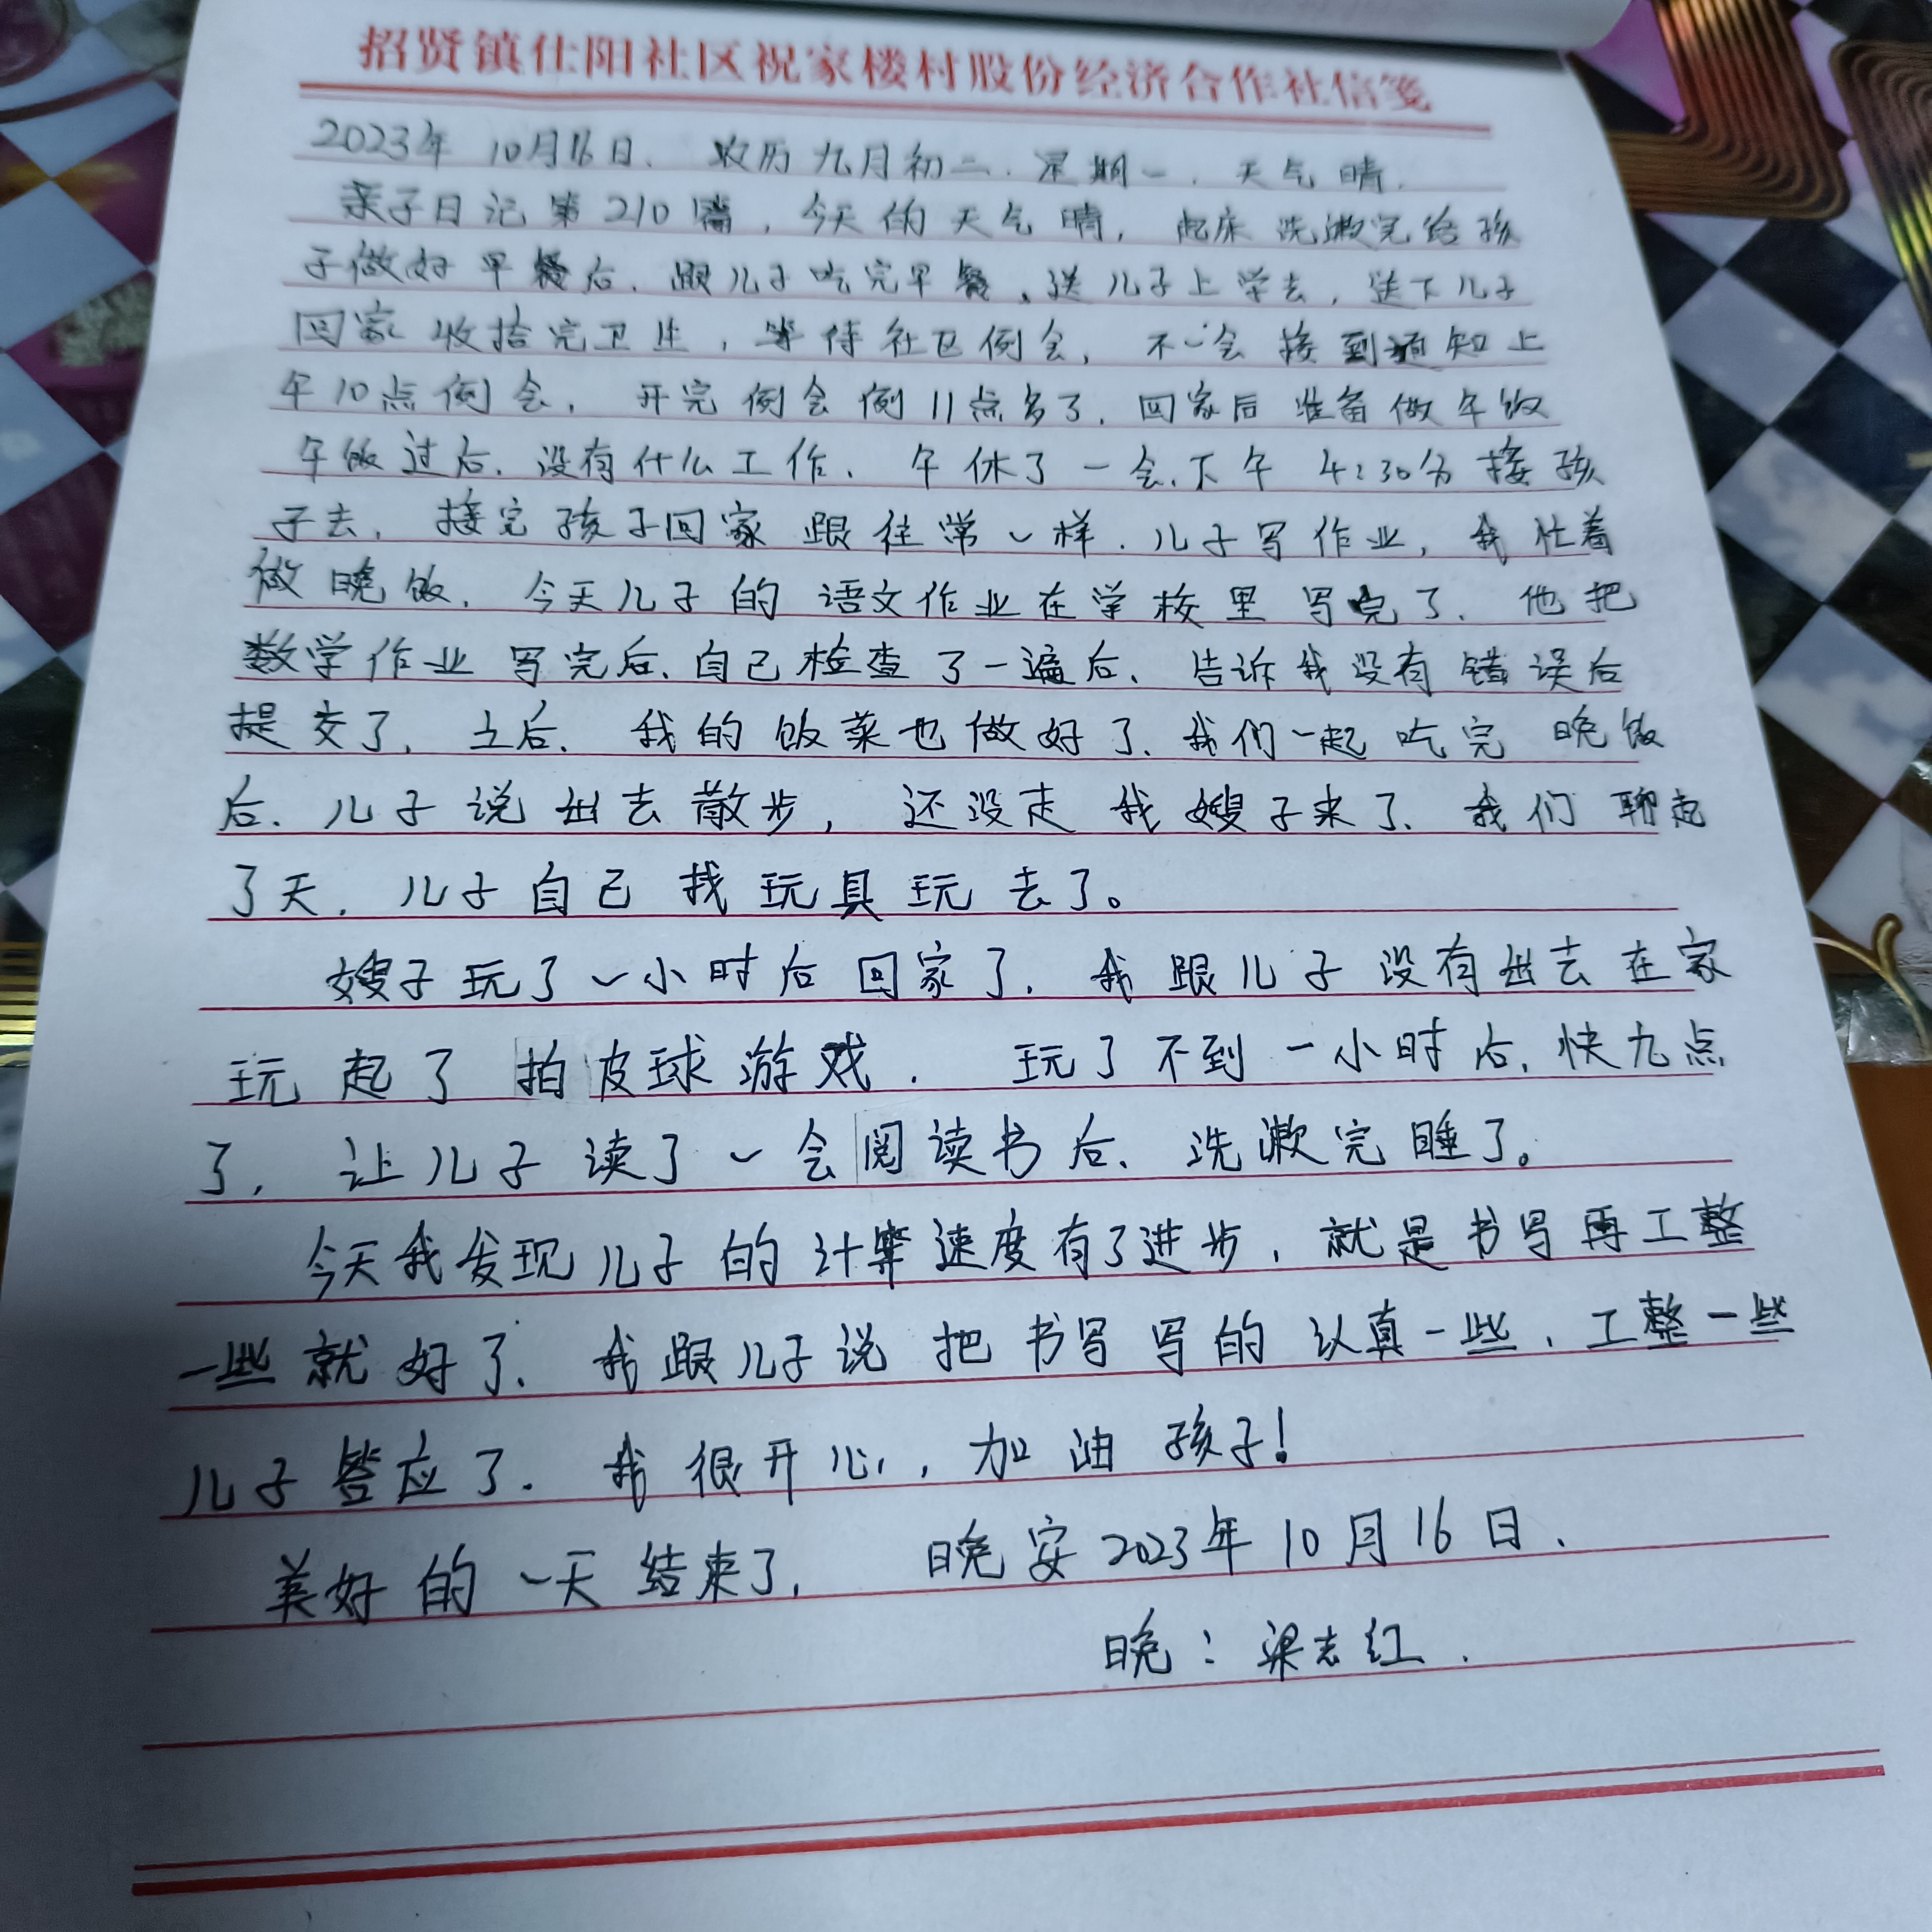 招贤镇仕阳社区祝家楼村股份经济合作社信笺
2023年 10月16日. 农历九月初二. 星期一. 天气晴.
亲子日记第210篇，今天的天气晴，起床洗漱完给孩
子做好早餐后.跟儿子吃完早餐，送儿子上学去，送下儿子
回家收拾完卫生，等待社区例会，不一会接到通知上
午10点例会，开完例会倒11点多了.回家后准备做午饭
午饭过后.没有什么工作.午休了一会.下午4:30分接孩
子去，接完孩子回家跟往常一样.儿子写作业，我忙着
做晚饭.今天儿子的语文作业在学校里写完了.他把
数学作业写完后.自己检查了一遍后、告诉我没有错误后
提交了.立后.我的饭菜也做好了.我们一起吃完晚饭
后.儿子说出去散步，还没走我嫂子来了.我们聊起
了天.儿子自己找玩具玩去了。
嫂子玩了一小时后回家了.我跟儿子没有出去在家
玩起了拍皮球游戏.玩了不到一小时后,快九点
了，让儿子读了一会阅读书后、洗漱完睡了。
今天我发现儿子的计算速度有了进步，就是书写再工整
一些就好了.我跟儿子说把书写写的认真一些，工整一些
儿子答应了.我很开心，加油孩子！
美好的一天结束了， 晚安2023年10月16日.
晚：梁志红.